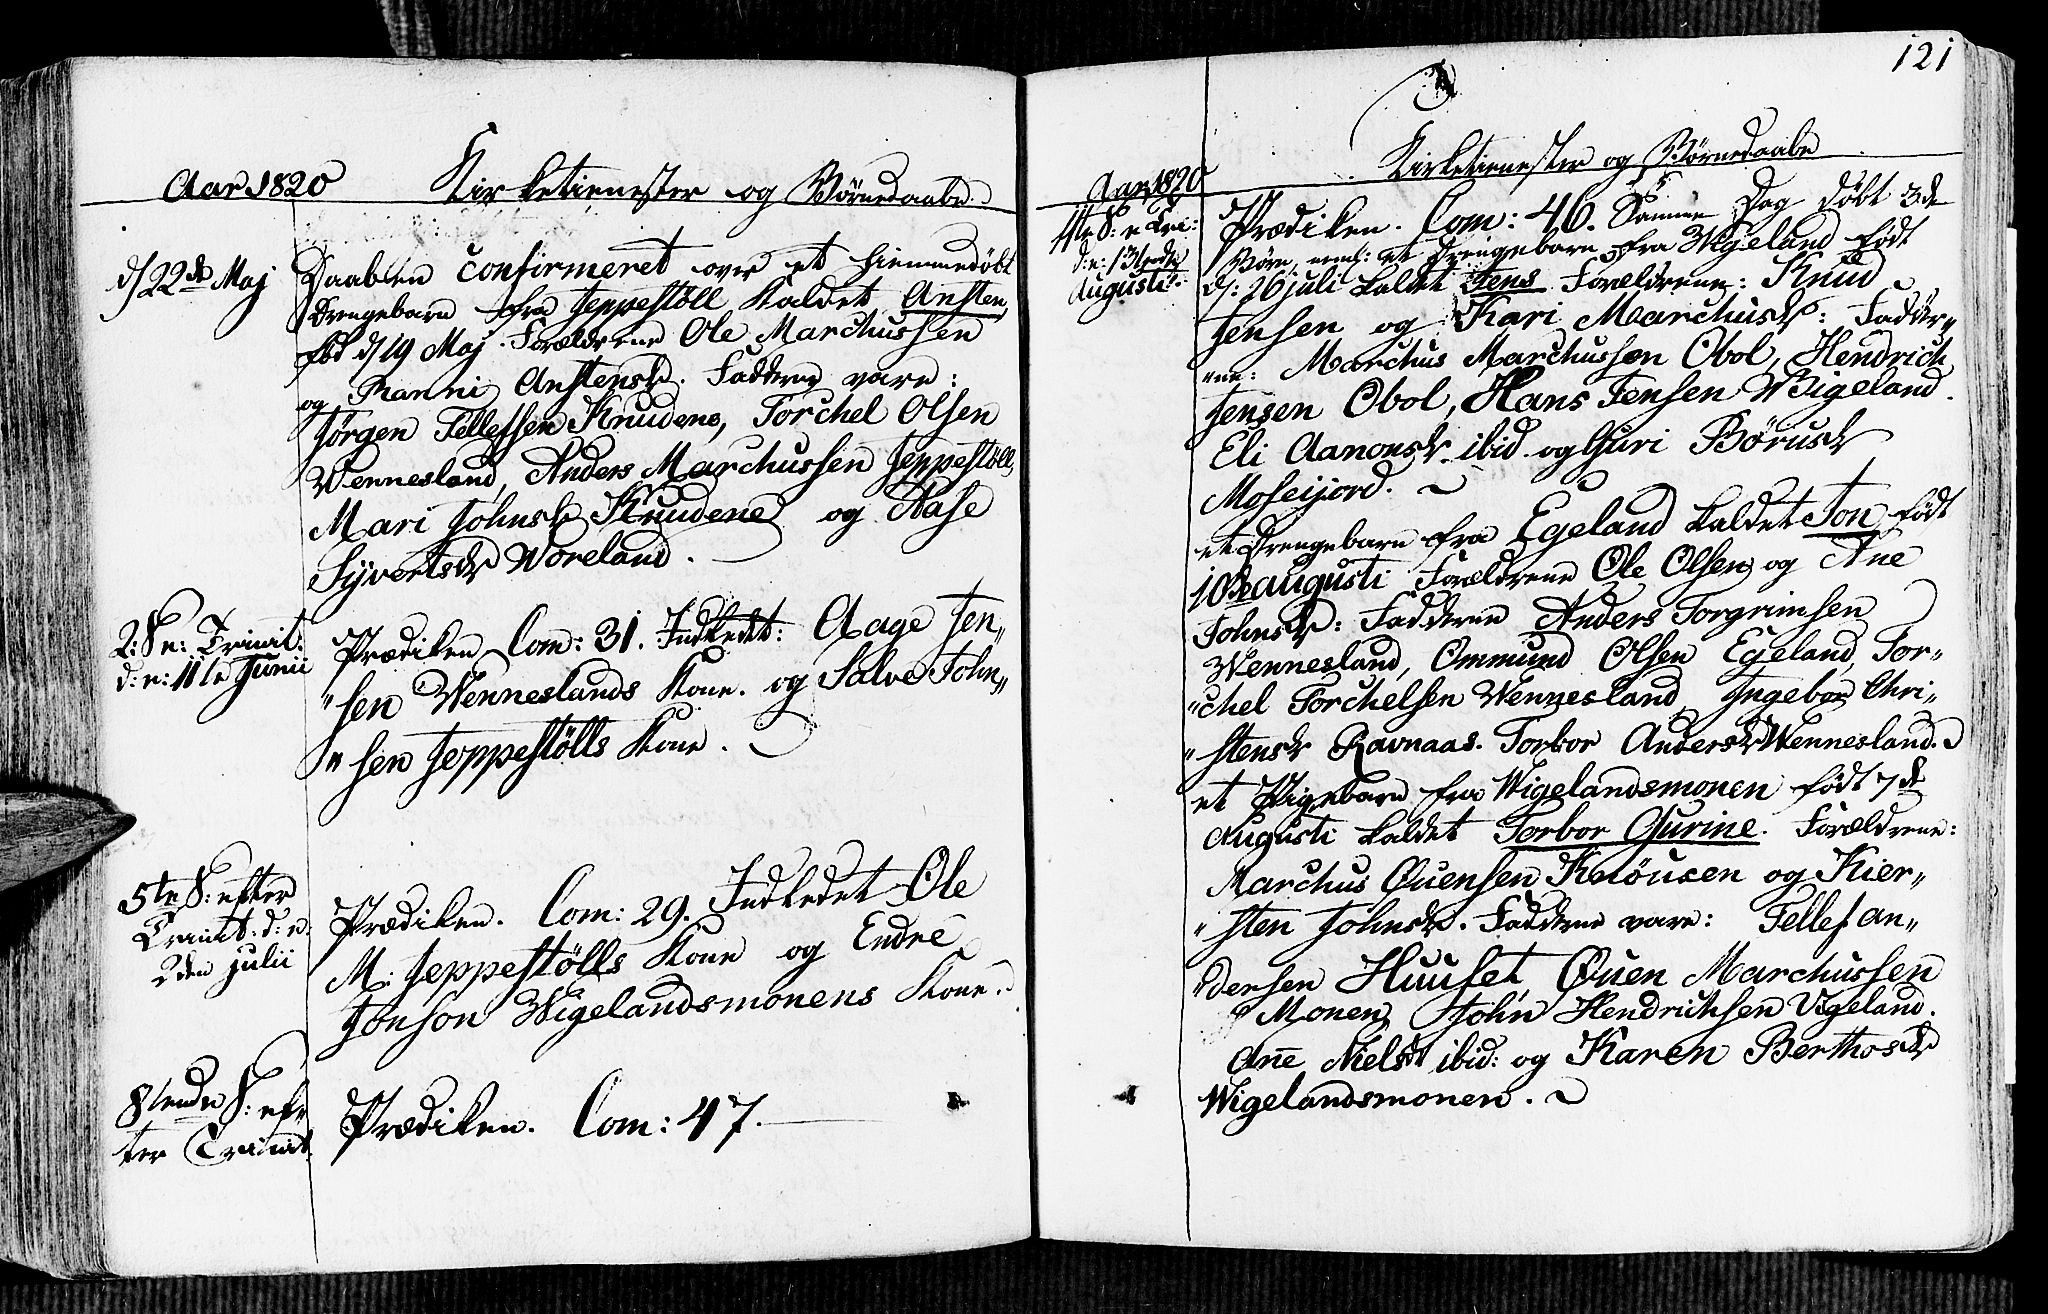 Aar 1820 Kirketienester og Börnedaabe.
d/ 22de Maj Daaben confirmeret over et hiemmedöbt
Drengebarn fra Jeppestöll kaldet Ansten
föd d/ 19 Maj. Forældrene Ole Marchussen
og Ranni Anstensdr. Fadderne vare:
Jörgen Tellefsen Knudene, Torchel Olsen
Wennesland, Anders Marchussen Jeppestöll,
Mari Johnsdr Knudene og Aase
Syvertsdr Woreland.
2: S e: Trinit: Prædiken Com: 31. Indledt: Aage Jen„
d: e: 11te Junii „sen Wenneslands Kone. og Salve John„
„sen Jeppestölls Kone.
5te S: efter Prædiken. Com: 29. Indledet Ole
Trinit: d: e: M: Jeppestölls Kone og Endre
2den julii Jonson Wigelandsmonens Kone.
8tende S: ef„ Prædiken. Com: 47.
ter Trinit.
121
Aar 1820 Kirketienester og Börnedaabe
11te S: e Tri: Prædiken. Com: 46. Samme Dag döbt 3de
d: e: 13tende Börn, neml: et Drengebarn fra Wigeland födt
Augusti. d/: 26 juli kaldet Jens Forældrene: Knud
Jensen og Kari Marchusdr: Fadder„
„ne: Marchus Marchussen Obol, Hendrich
Jensen Obol, Hans Jensen Wigeland.
Eli Aanonsdr ibid. og Guri Börusdr
Moseijord.
et Drengebarn fra Egeland kaldet Jon födt
10de augusti Forældrene Ole Olsen og Ane
Johnsdr: Fadderne Anders Torgrimsen
Wennesland, Ommund Olsen Egeland, Tor„
„chel Torchelsen Wennesland Ingebor Chri„
„stensdr Ravnaas. Torbor Andersdr Wennesland.
et Pigebarn fra Wigelandsmonen födt 7de
Augusti kaldet Torbor Gurine. Forældrene:
Marchus Øuensen Knöusen og Kier„
„sten Johnsdr. Fadderne vare: Tellef An„
„dersen Huuset, Øuen Marchussen
Monen, John Hendrichsen Vigeland.
Ane Nielsdr ibid: og Karen Berthosdr
Wigelandsmonen.